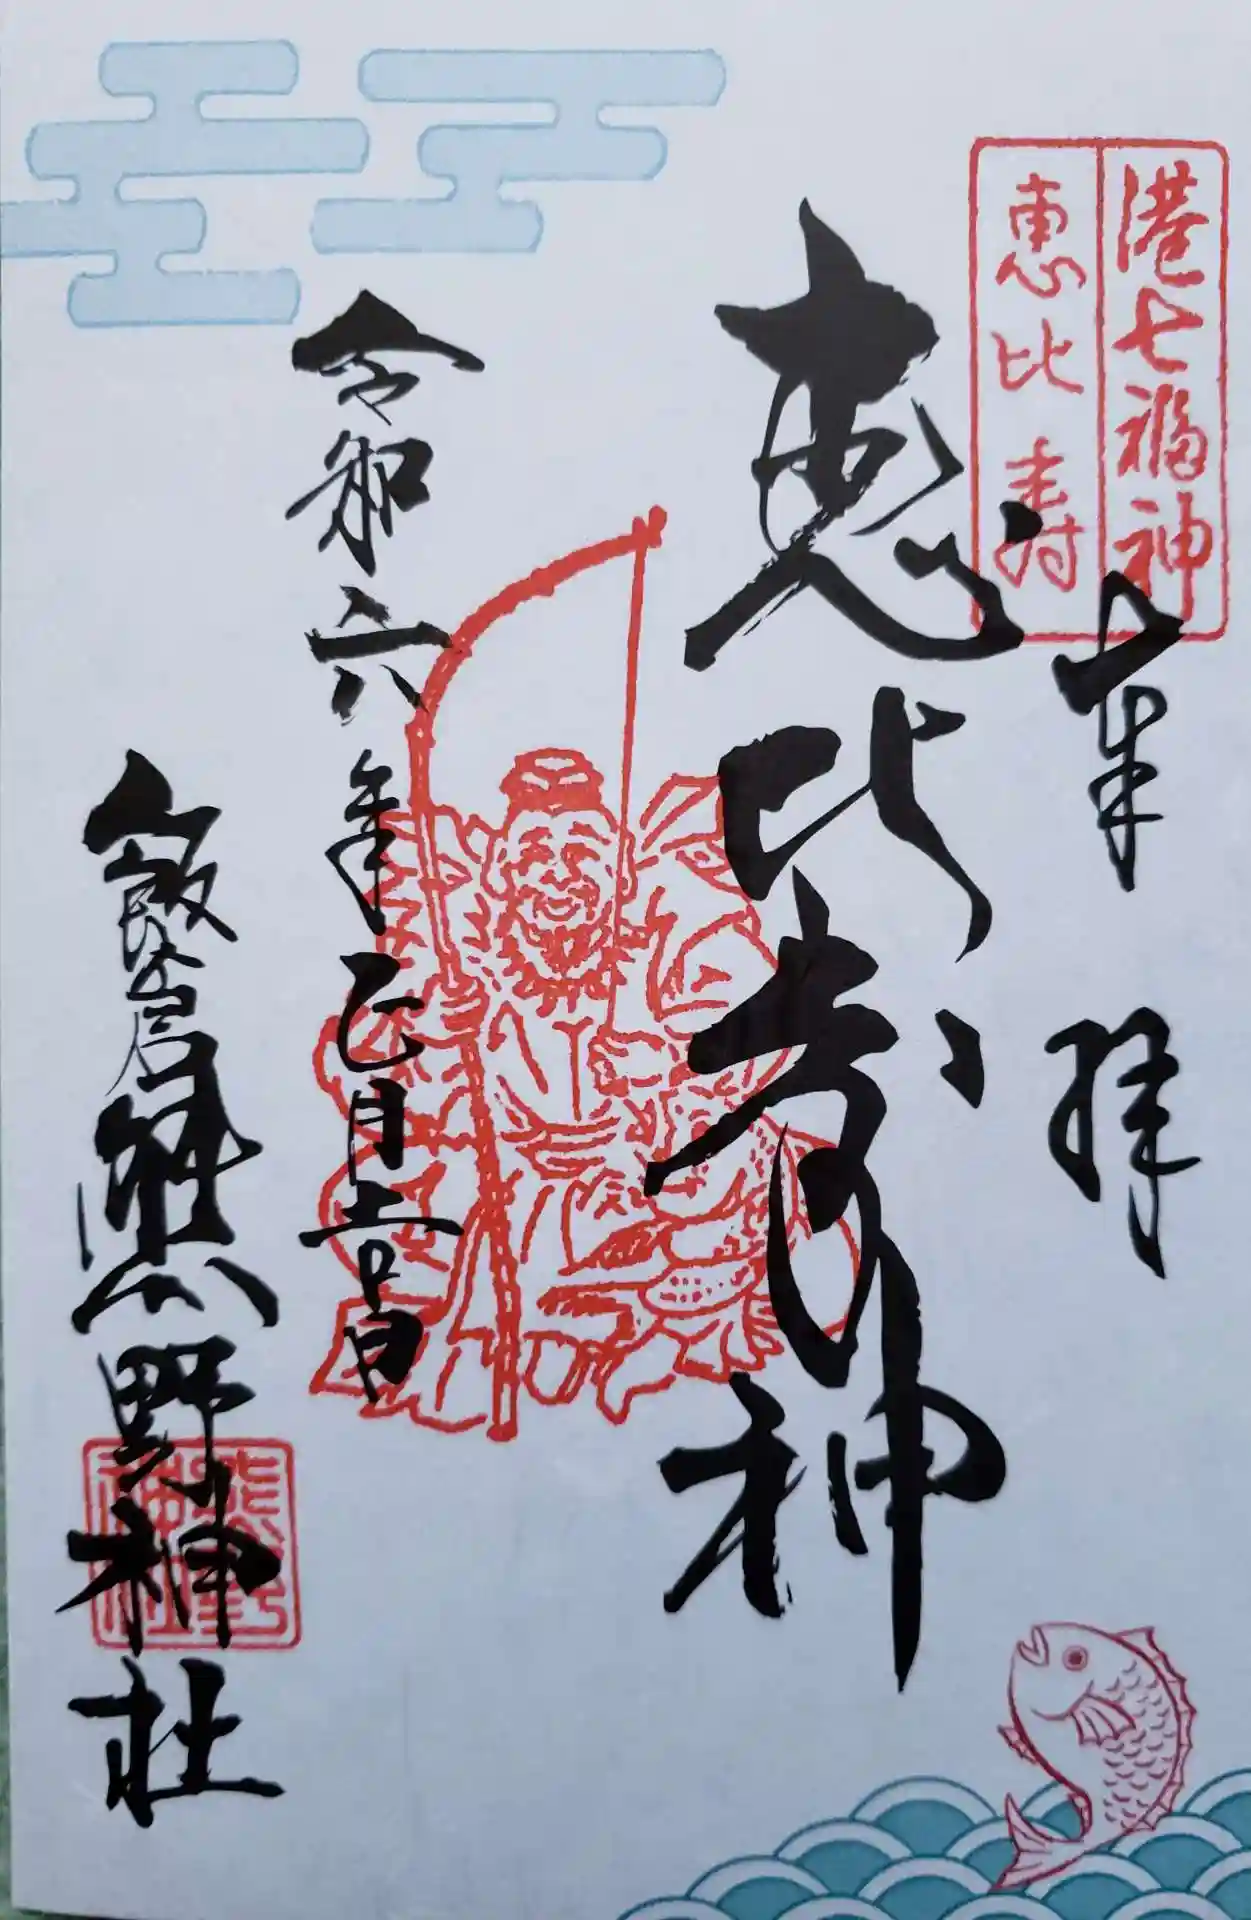 港七福神
恵比寿
奉拝
恵比寿神
令和六年正月吉日
飯倉熊野神社
熊野
神社